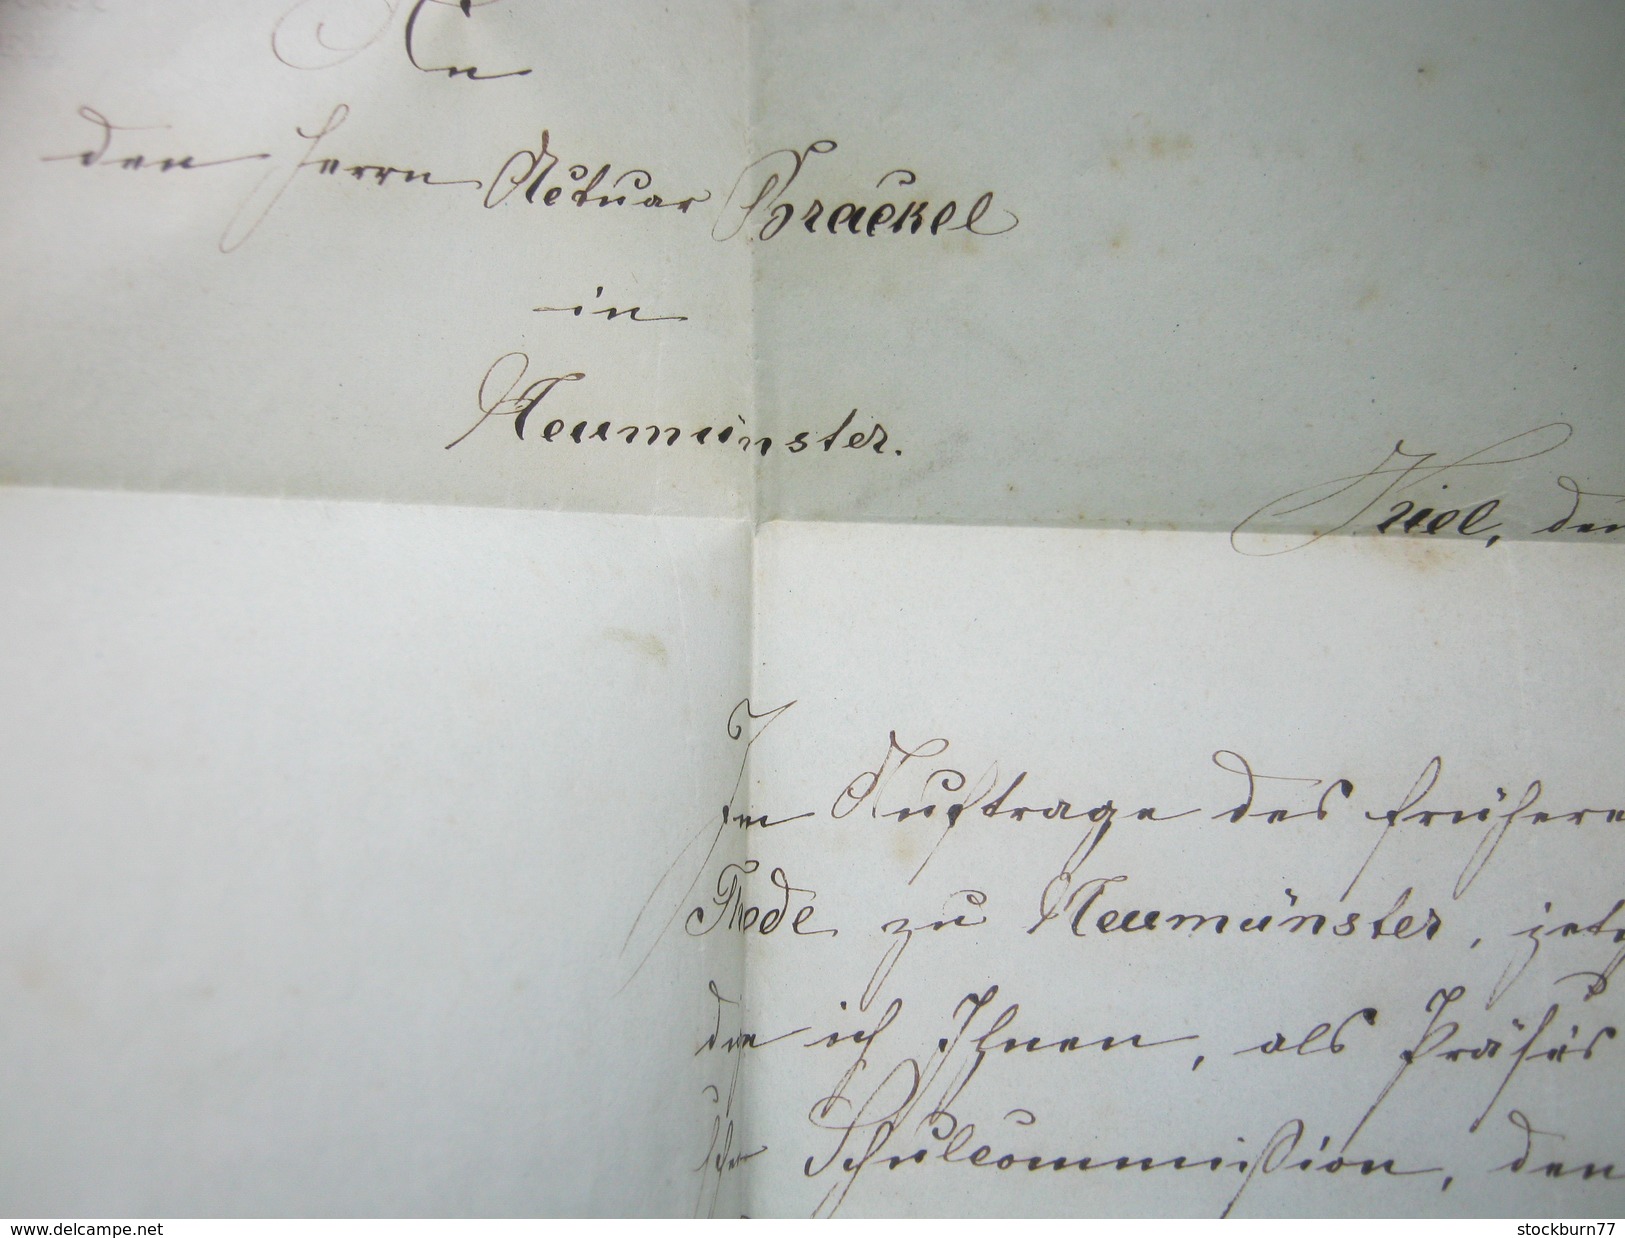 An
den Herrn Actuar Brackel
in
Neumünster.
Kiel, den
Im Auftrage des frühere
Thode zu Neumünster, jetz
ich Ihnen, als Präses
Schulcommißion, den
www.delcampe.net
stockburn77